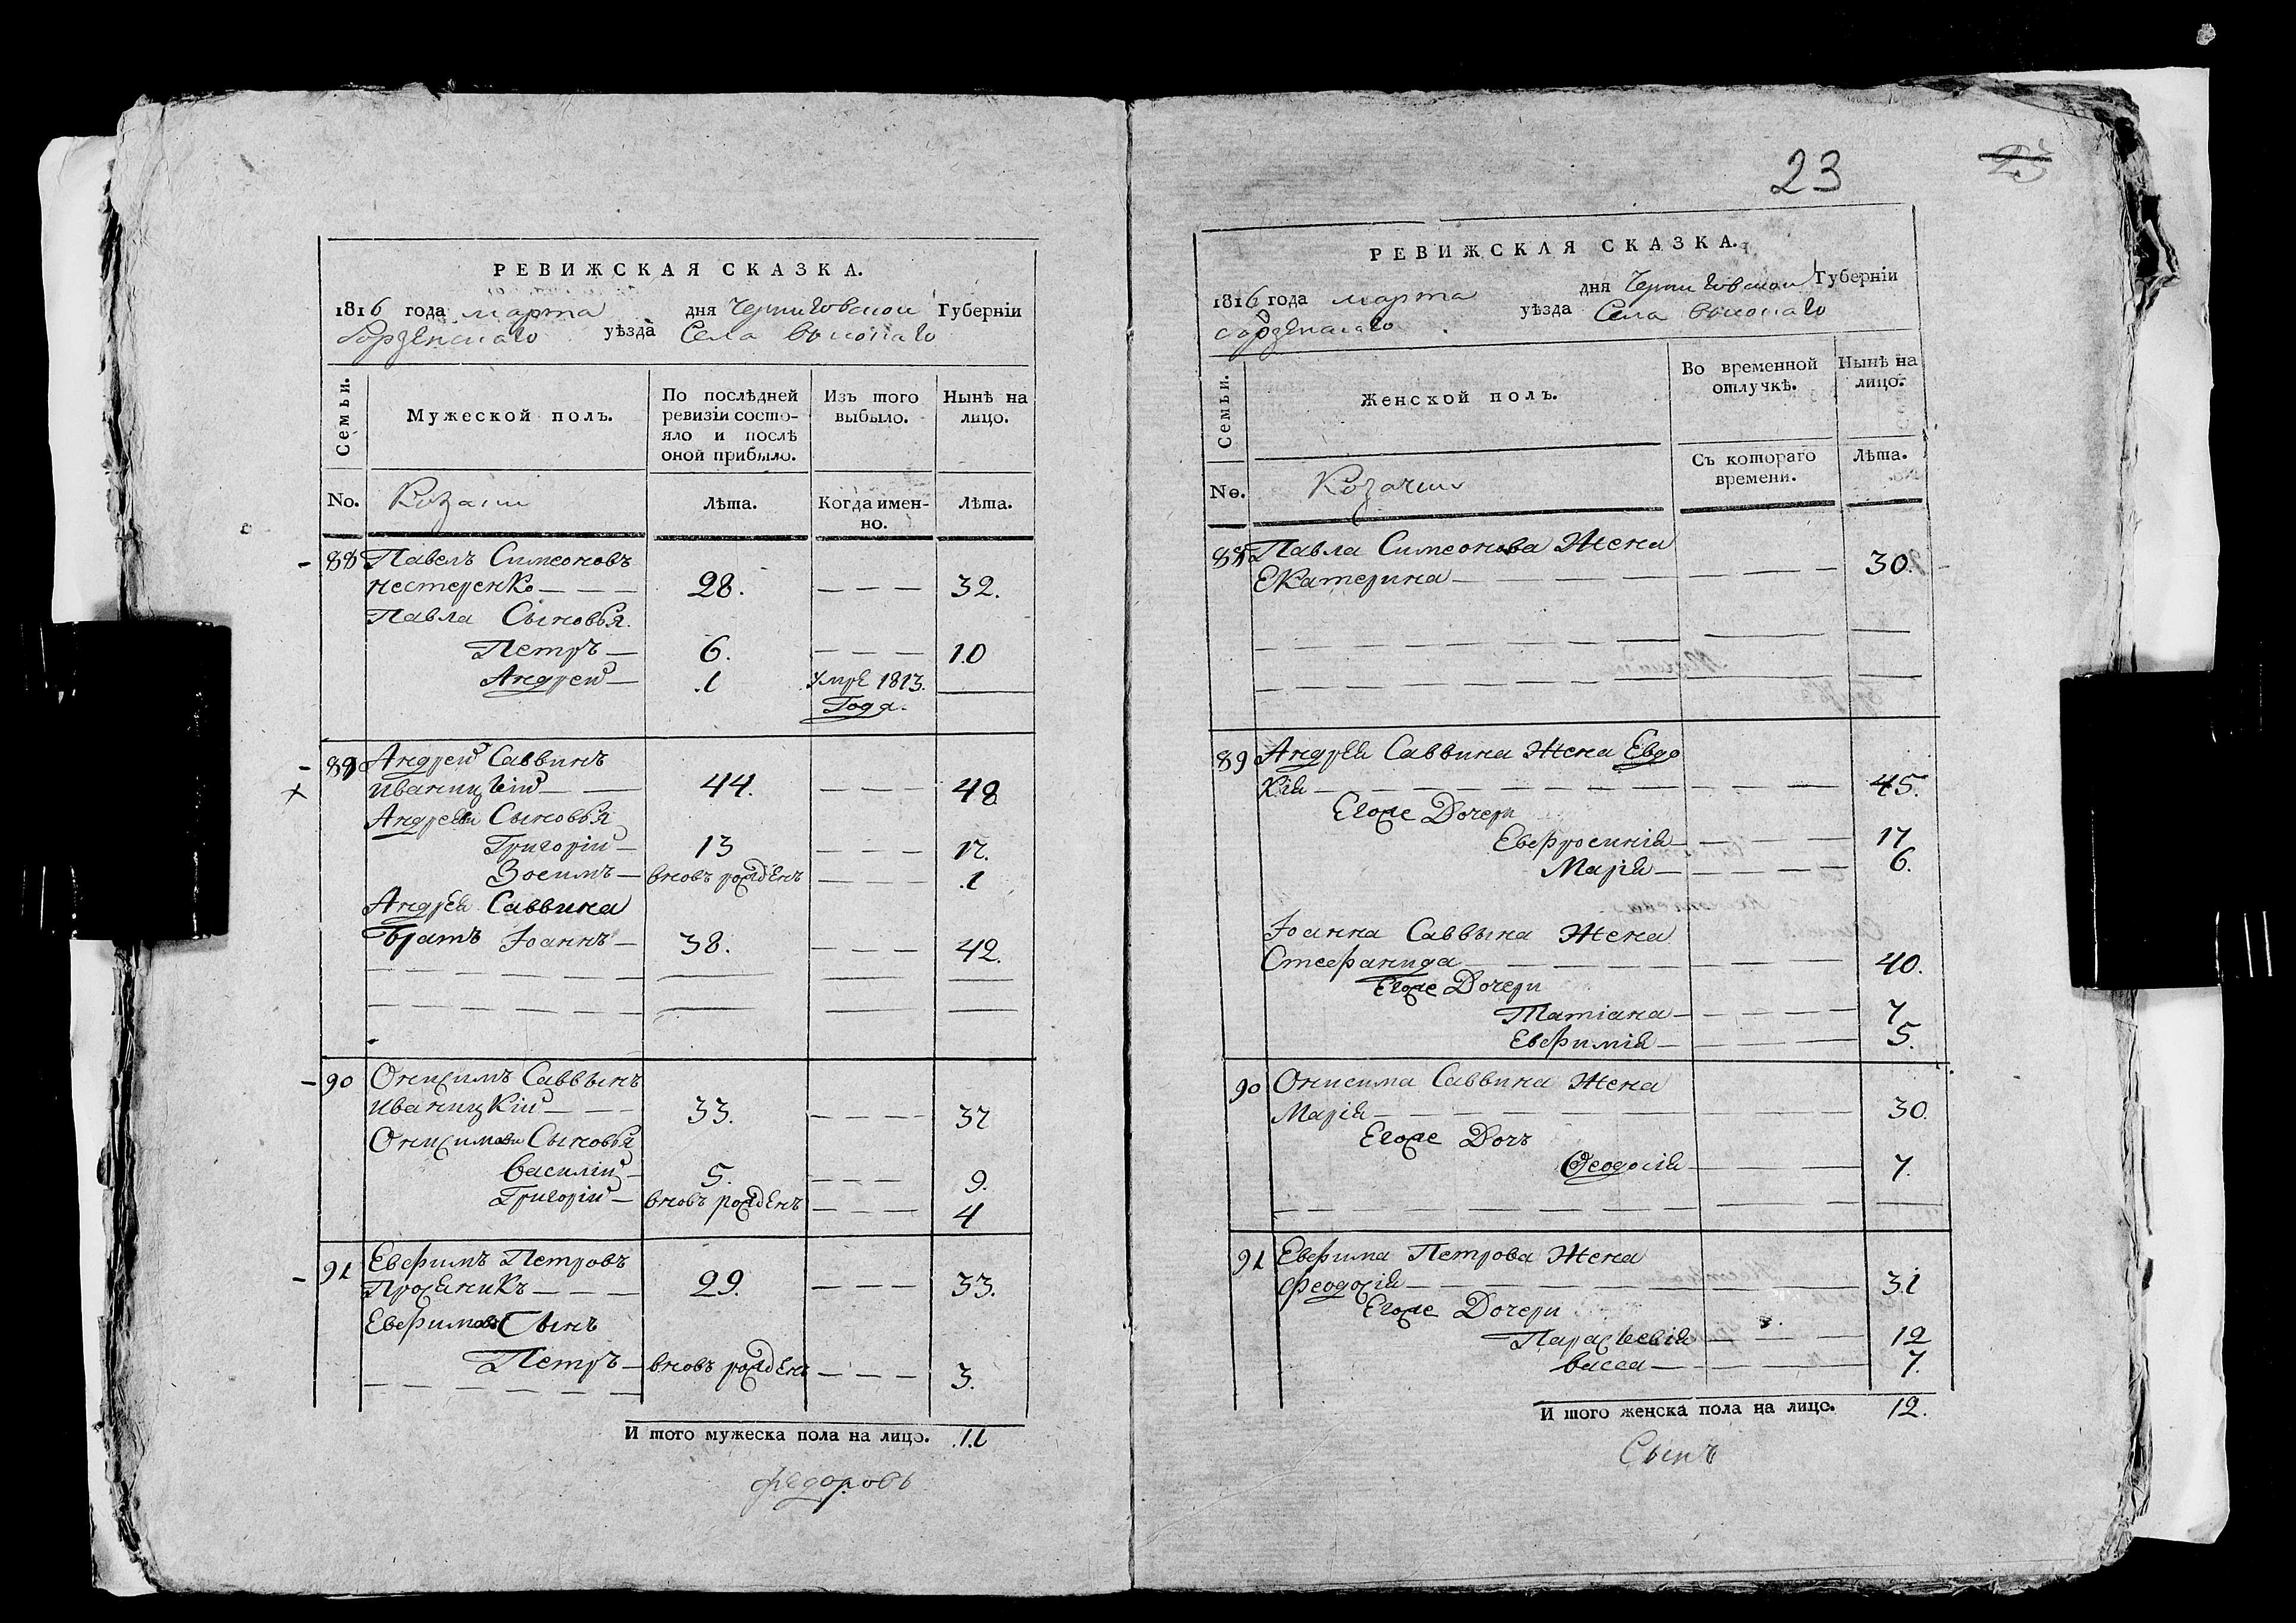 РЕВИЖСКАЯ СКАЗКА.
1816 года марта дня Черниговской Губернїи
Борзенскаго уѣзда Села высокаго
Семьи.
Мужеской полъ.
По послѣдней ревизїи состо-
яло и послѣ
оной прибыло.
Изъ того
выбыло.
Нынѣ на
лицо.
No.
Козаки
Лѣта.
Когда имен-
но.
Лѣта.
88 Павелъ Симеоновъ
нестеренко — — — 28. — — — 32.
Павла Сыновья.
Петръ — 6. — — — 10
Андрей — 1 умре 1813.
Года.
89 Андрей Саввинъ
иваницкій — — 44. — — — 48
Андреевы Сыновья
Григорій — 13 — — — 17.
Зосимъ — вновь рожденъ — — — 1
Андрея Саввина
Братъ Іоаннъ — 38. — — — 42.
90 Онисимъ Саввынъ
иваницкій — — — 33. — — — 37
Онисимовы Сыновья
василій — 5. — — — 9.
Григорій — вновь рожденъ — — — 4
91 Евфимъ Петровъ
Просяникъ — — — 29. — — — 33.
Евфимовъ Сынъ
Петръ — вновь рожденъ — — — 3.
И того мужеска пола на лицо. 11
Федоровъ
23
23
РЕВИЖСКАЯ СКАЗКА.
1816 года марта дня Черниговской Губернїи
борзенскаго уѣзда Села высокаго
Семьи.
Женской полъ.
Во временной
отлучкѣ.
Нынѣ на
лицо.
No.
Козачки
Съ котораго
времени.
Лѣта.
88 Павла Симеонова Жена
Екатерина — — — 30.
89 Андрея Саввина Жена Евдо
кія — — — 45.
Егоже Дочери
Евфросинія — — — 17
Марія — — — 6.
Іоанна Саввына Жена
Стефанида — — — 40.
Егоже Дочери
Татіана — — — 7
Евфимія — — — 5.
90 Онисима Саввина Жена
Марія — — — 30.
Егоже Дочь
Феодосія — — — 7.
91 Евфима Петрова Жена
феодосія — — — 31
Егоже Дочери
Параскевія — — — 12
васса — — — 7.
И того женска пола на лицо. 12.
Сынъ